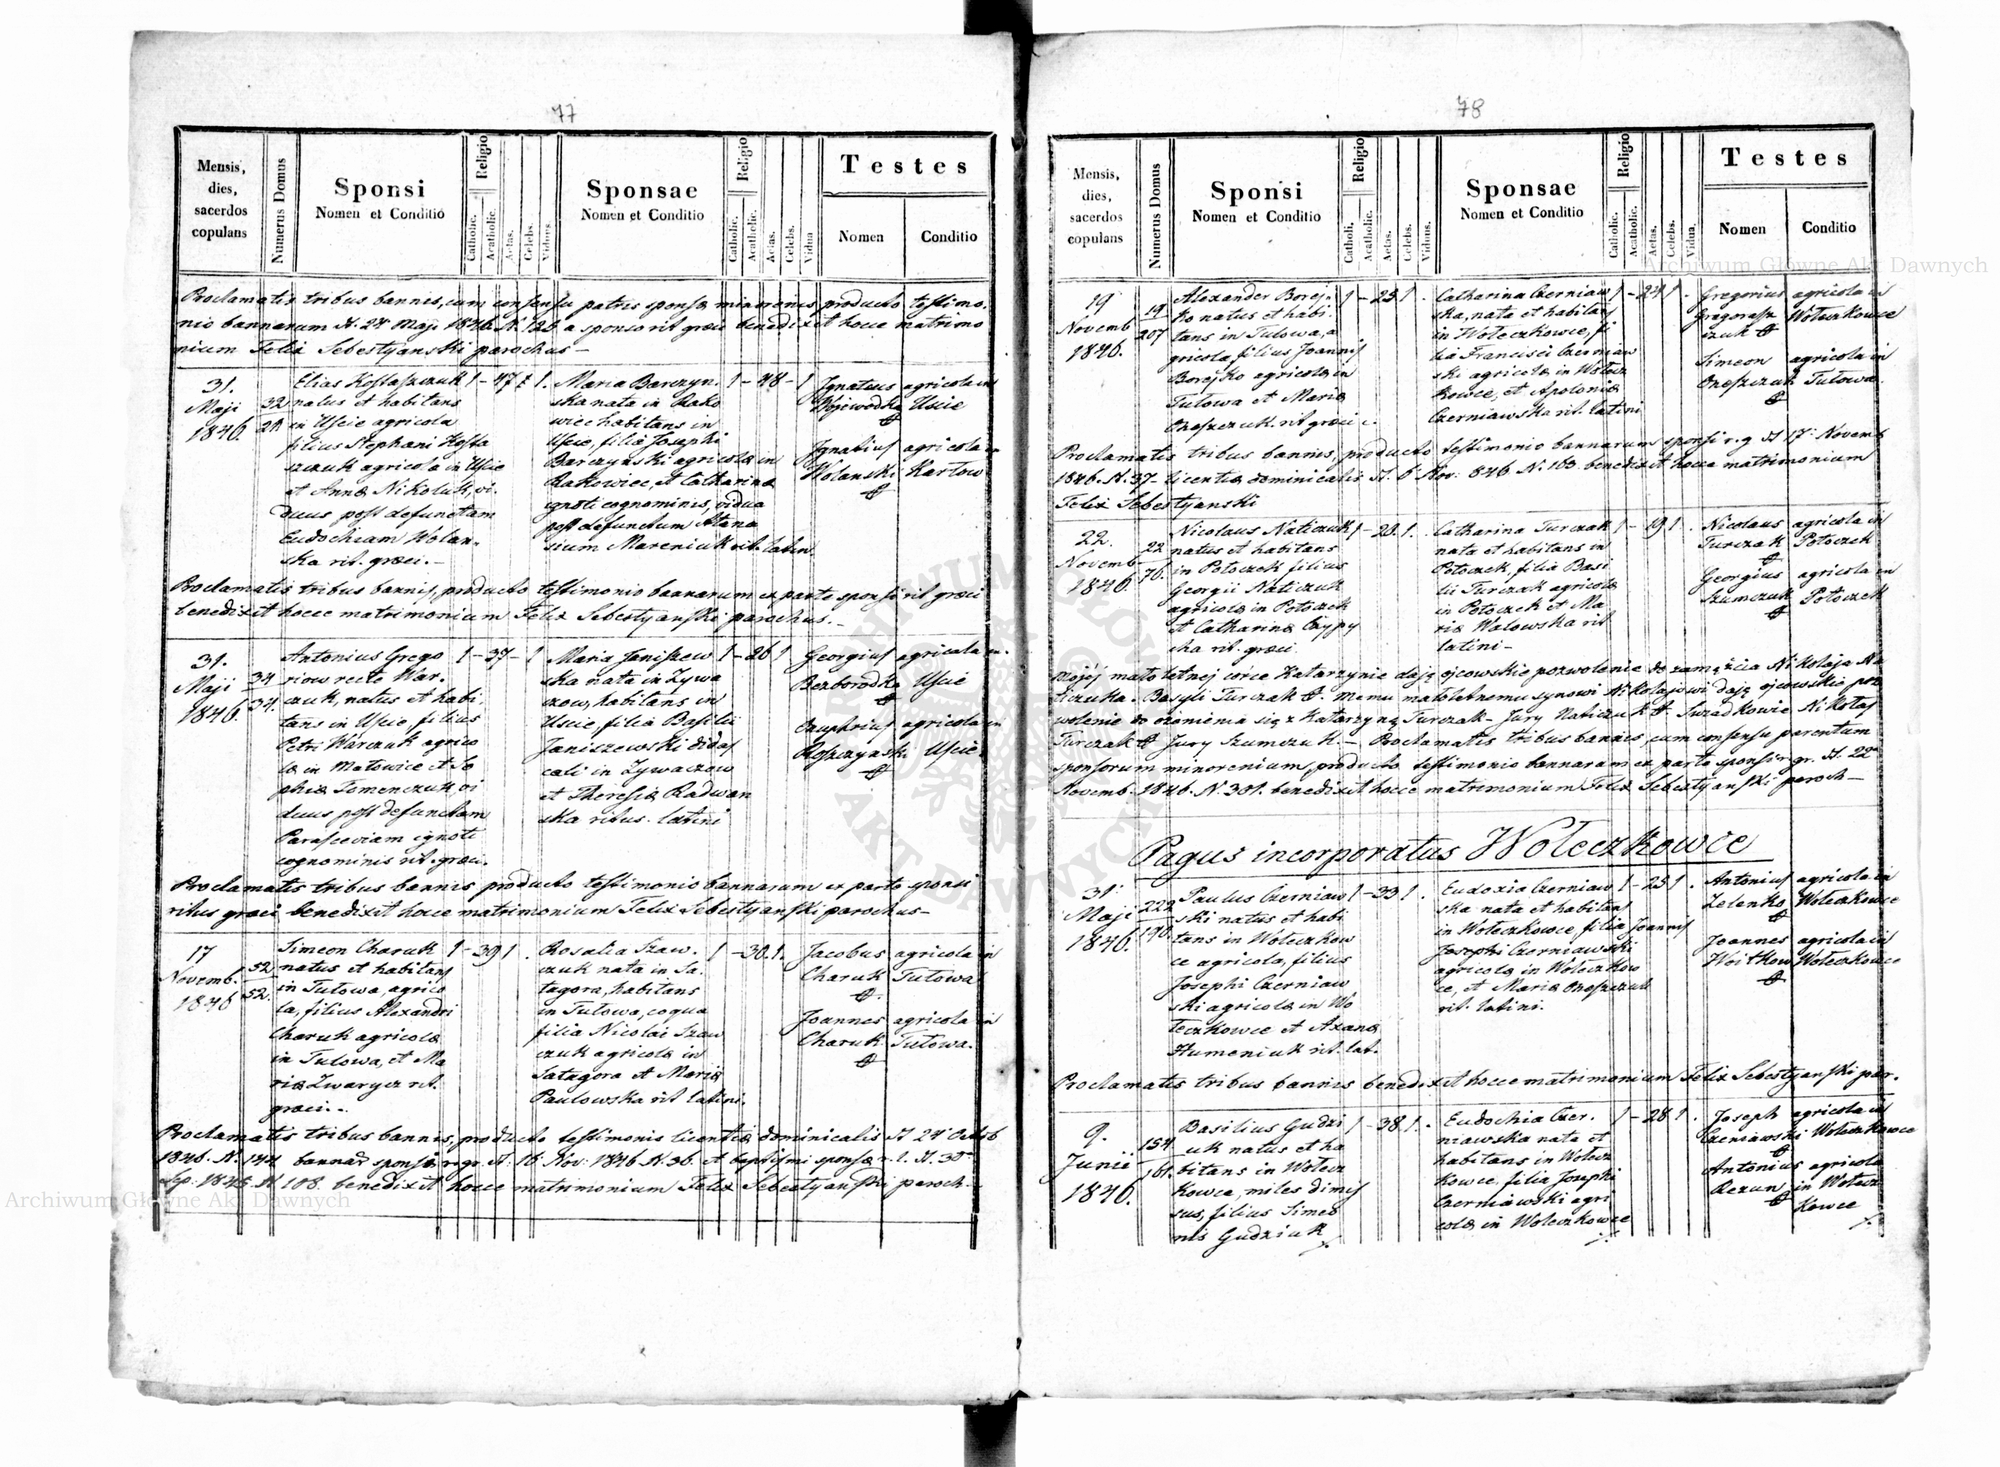 77
Mensis,
dies,
sacerdos
copulans
Numerus Domus
Sponsi
Nomen et Conditio
Religio
Catholic.
Acatholic.
Aetas.
Celebs.
Viduus.
Sponsae
Nomen et Conditio
Religio
Catholic.
Acatholic.
Aetas.
Celebs.
Vidua
Testes
Nomen
Conditio
Proclamatis tribus bannis, cum consensu patris sponsæ minorenis producto testimo.
nio bannarum d. 24 Maji 1846 N. 126 a sponso rit. græci benedixit hocce matrimo
nium Felix Sebestyanski parochus –
31.
Maji
1846.
32
Elias Kostaszczuk
natus et habitans
in Uscie agricola
filius Stephani Kosta
szczuk agricola in Uscie
et Annæ Nikoluk, vi.
duus post defunctam
Eudochiam Wolan-
ska rit. græci. –
1 – 47
Maria Barczyn.
ska nata in Rako
wiec habitans in
Uscie, filia Josephi
Barczynski agricolæ in
Rakowiec, et Catharinæ
ignoti cognominis, vidua
post defunctum Atana
sium Mareniuk rit. latin.
1 – 48 – 1
Ignatius agricola in
Wojewodka Uscie
Ignatius agricola in
Wolanski Karlow
Proclamatis tribus bannis, producto testimonio bannarum ex parte sponsi rit. græci
benedixit hocce matrimonium Felix Sebestyanski parochus. –
31.
Maji
1846.
34
34.
Antonius Grego
riow recte War.
czuk, natus et habi.
tans in Uscie, filius
Petri Warczuk agrico
læ in Matowice et So
phiæ Semenczuk, vi
duus post defunctam
Parasceviam ignoti
cognominis rit. græci.
1 – 37 – 1
Maria Janiszew
ska nata in Zywa
czow, habitans in
Uscie, filia Basilii
Janiszewski didas
cali in Zywaczow
et Theresiæ Radwan
ska ritus latini
1 – 26 1
Georgius agricola in
Bezborodka Uscie
Onuphrius agricola in
Roszczynski Uscie.
Proclamatis tribus bannis producto testimonio bannarum ex parte sponsi
ritus græci benedixit hocce matrimonium Felix Sebestyanski parochus –
17
Novemb.
1846
52
52.
Simeon Charuk
natus et habitans
in Tulowa, agrico
la, filius Alexandri
Charuk agricolæ
in Tulowa, et Ma
riæ Zwarycz rit.
græci. –
1 – 39 1 .
Rosalia Szaw.
czuk nata in Sa.
tagora, habitans
in Tulowa, coqua
filia Nicolai Szaw
czuk agricolæ in
Satagora et Mariæ
Paulowska rit latini.
1 – 30. 1.
Jacobus agricola in
Charuk Tulowa
Joannes agricola in
Charuk Tulowa.
Proclamatis tribus bannis, producto testimonio licentiæ dominicalis d 24 Octob
1846. N. 144 bannar sponsi r. gr. d. 16 Nov. 1846 N. 36. et baptismi sponsæ r. l. d. 30
Sep. 1845 N 108. benedixit hocce matrimonium Felix Sebestyanski paroch –
78
Mensis,
dies,
sacerdos
copulans
Numerus Domus
Sponsi
Nomen et Conditio
Religio
Catholi.
Acatholic.
Aetas.
Celebs.
Viduus.
Sponsae
Nomen et Conditio
Religio
Catholic.
Acatholic.
Aetas.
Celebs.
Vidua.
Testes
Nomen
Conditio
19
Novemb
1846.
19
207
Alexander Borej.
ko natus et habi.
tans in Tulowa, a
gricola, filius Joannis
Borejko agricolæ in
Tulowa et Mariæ
Onoszczuk rit græci
1 – 25 1 .
Catharina Czerniaw
ska, nata et habitans
in Woleczkowce, fi
lia Francisci Czerniaw
ski agricolæ in Wolecz
kowce, et Apoloniæ
Czerniawska rit. latini
1 – 24 1 .
Gregorius agricola in
Gregorasz Woleczkowce
czuk
Simeon agricola in
Onoszczuk Tulowa
Proclamatis tribus bannis, producto testimonio bannarum sponsi r. g d 17 Novemb
1846 N. 37 – licentiæ dominicalis d. 6 Nov: 846 N. 163 benedixit hocce matrimonium
Felix Sebestyanski
22.
Novemb
1846
22
76.
Nicolaus Naticzuk
natus et habitans
in Potoczek filius
Georgii Naticzuk
agricolæ in Potoczek
et Catharinæ Czypy
ska rit. græci
1 – 20. 1.
Catharina Turczak
nata et habitans in
Potoczek, filia Basi
lii Turczak agricolæ
in Potoczek et Ma
riæ Walowska rit
latini –
1 – 19 1 .
Nicolaus agricola in
Turczak Potoczek
Georgius agricola in
Szumczuk Potoczek
Mojéj małoletnéj córce Katarzynie daję ojcowskie pozwolenie do zamęścia Nikołaja Na
ticzuka. Basyli Turczak Memu małoletnemu synowi Nikołajowi daję ojcowskie poz
wolenie do ożenienia się z Katarzyną Turczak – Jury Naticzuk . Świadkowie Nikołaj
Turczak Jury Szumczuk. – Proclamatis tribus bannis, cum consensu parentum
sponsorum minorenium, producto testimonio bannarum ex parte sponsi r. gr. d. 22
Novemb. 1846. N. 301. benedixit hocce matrimonium Felix Sebestyanski paroch –
Pagus incorporatus Woleczkowce
31
Maji
1846.
222
190.
Paulus Czerniaw
ski natus et habi
tans in Woleczkow
ce agricola, filius
Josephi Czerniaw
ski agricolæ in Wo
leczkowce et Axanæ
Humeniuk rit. lat.
1 – 33 1 .
Eudoxia Czerniaw
ska nata et habitans
in Woleczkowce, filia Joannis
Josephi Czerniawski
agricolæ in Woleczkow
ce, et Mariæ Onoszczuk
rit. latini.
1 – 25 1 .
Antonius agricola in
Zelenko Woleczkowce
Joannes agricola in
Woitkow Woleczkowce
Proclamatis tribus bannis benedixit hocce matrimonium Felix Sebestyanski par.
9.
Junii
1846.
154
161.
Basilius Gudzi
uk natus et ha
bitans in Wolecz
kowce, miles dimis
sus, filius Simeo
nis Gudziuk
1 – 38 1 .
Eudochia Czer.
niawska nata et
habitans in Wolecz
kowce filia Josephi
Czerniawski agri
colæ in Woleczkowce
1 – 28 1 .
Joseph agricola in
Czerniawski Woleczkowce
Antonius agricola
Rezun in Wolecz
kowce
Archiwum Główne Akt Dawnych
Archiwum Główne Akt Dawnych
ARCHIWUM GŁÓWNE
AKT DAWNYCH